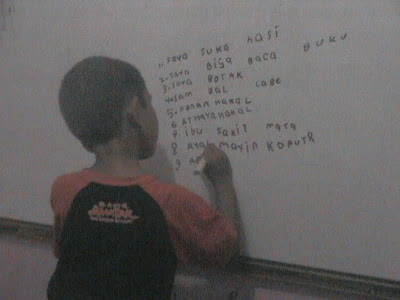 1. saya suka nasi
2. saya bisa baca buku
3. saya botak
4. sam bal cabe
5. nakal
6. nakal
7. ibu sakit mata
8. ayah mayin
9. a